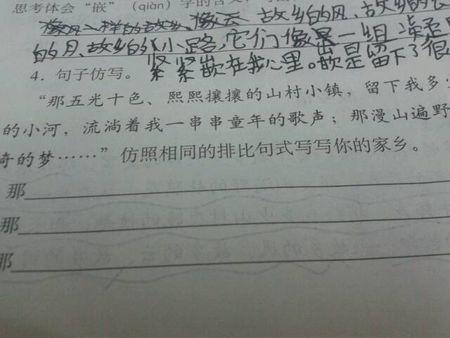 思考体会“嵌”（qiàn）字的含义，写出
故乡的风、故乡的
的月、故乡的小路，它们像是一组
4．句子仿写。紧紧嵌在我心里。嵌是留下了很
“那五光十色、熙熙攘攘的山村小镇，留下我多
的小河，流淌着我一串串童年的歌声；那漫山遍野
奇的梦……”仿照相同的排比句式写写你的家乡。
那
那
那